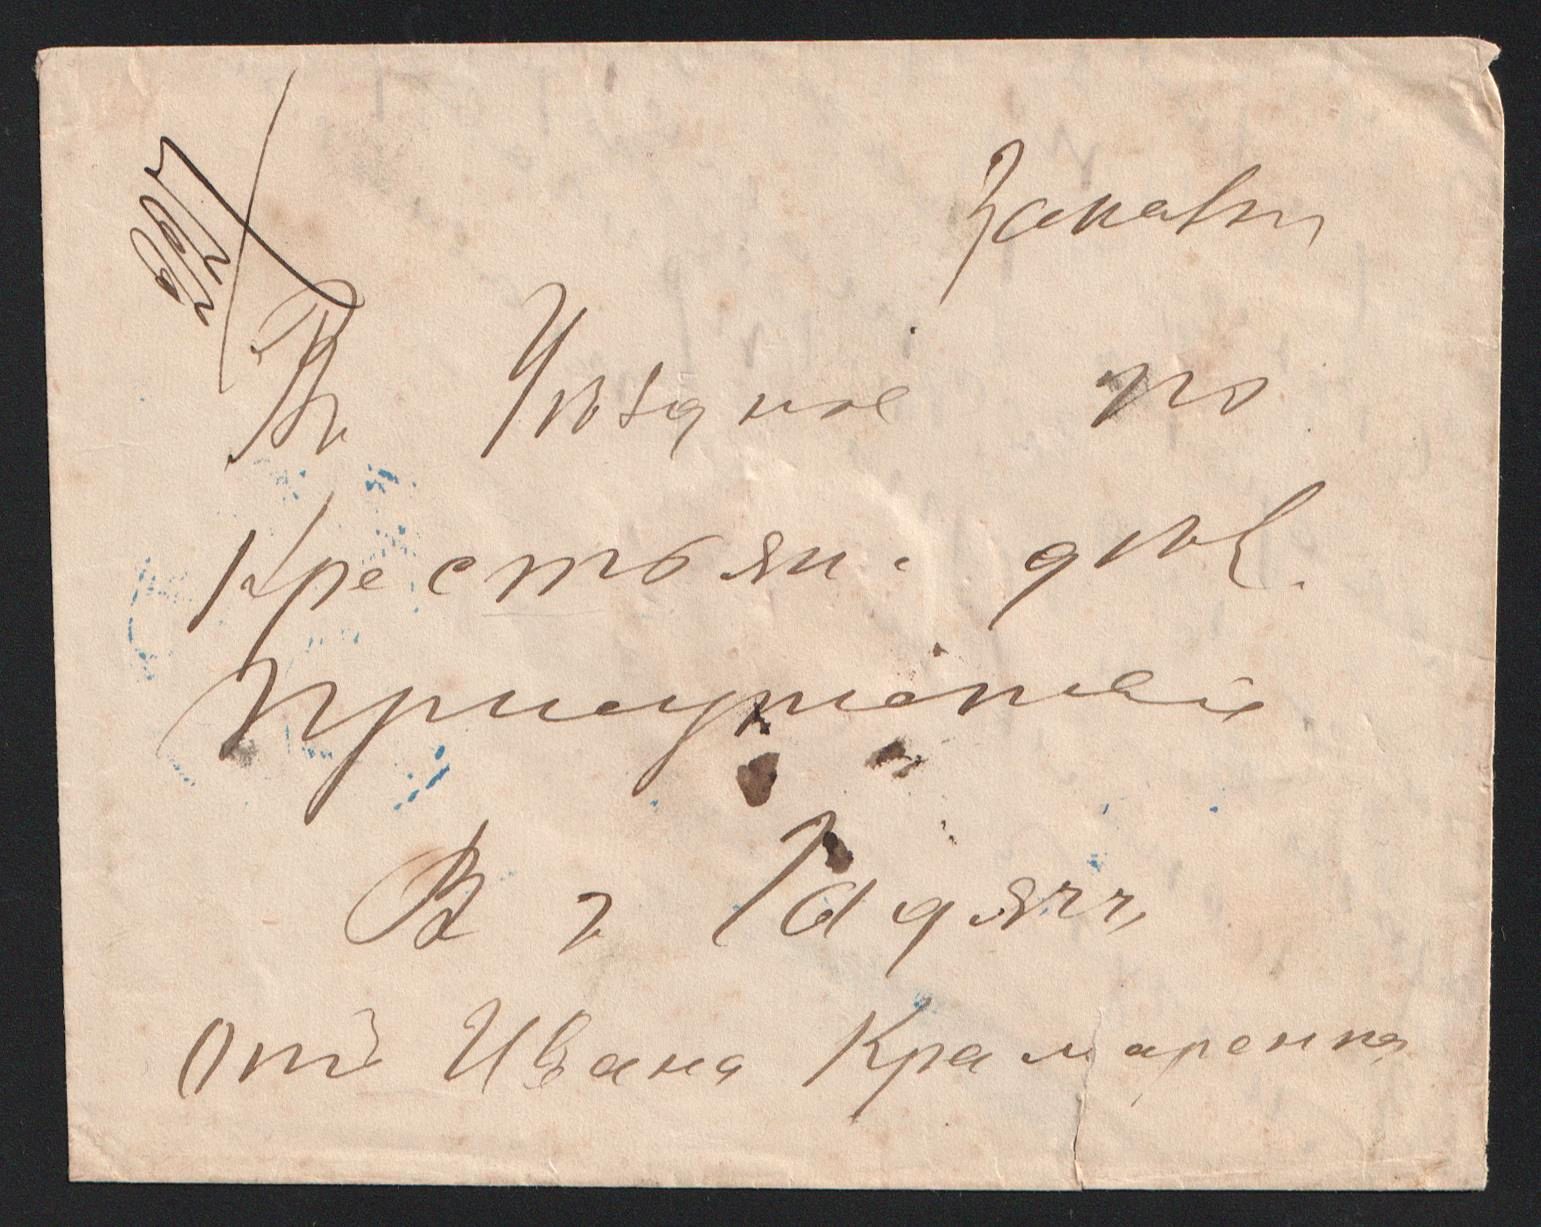 Заказн
Въ Уѣздное по
Крестьян. дѣл.
присутствіе
В г Гадячъ
отъ Ивана Крамаренка